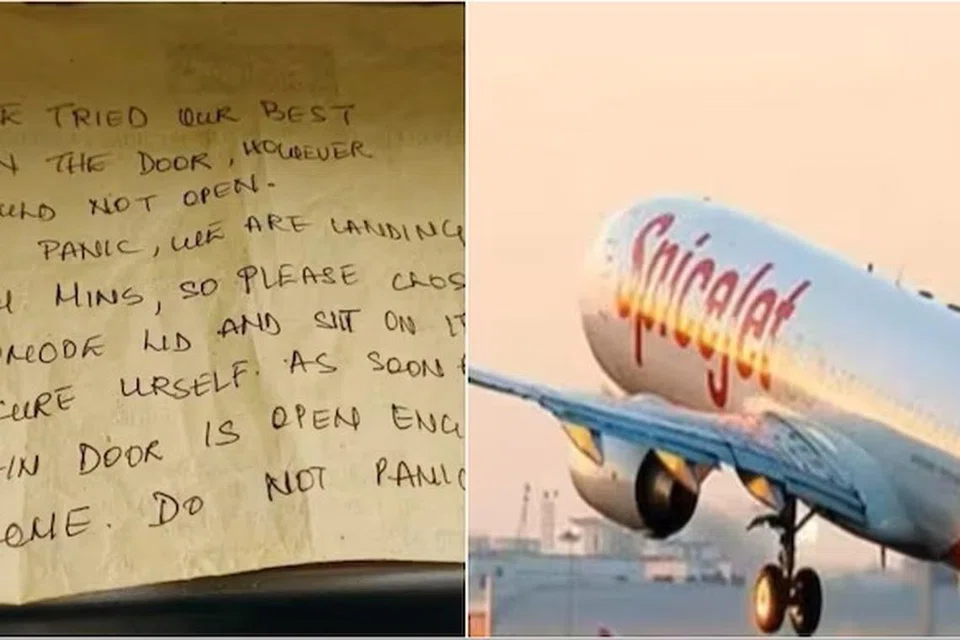 E TRIED OUR BEST
N THE DOOR, HOWEVER
ULD NOT OPEN.
PANIC, WE ARE LANDING
MINS, SO PLEASE CLOS
OMODE LID AND SIT ON IT
CURE URSELF. AS SOON
IN DOOR IS OPEN ENG
OME. DO NOT PANIC
SpiceJet